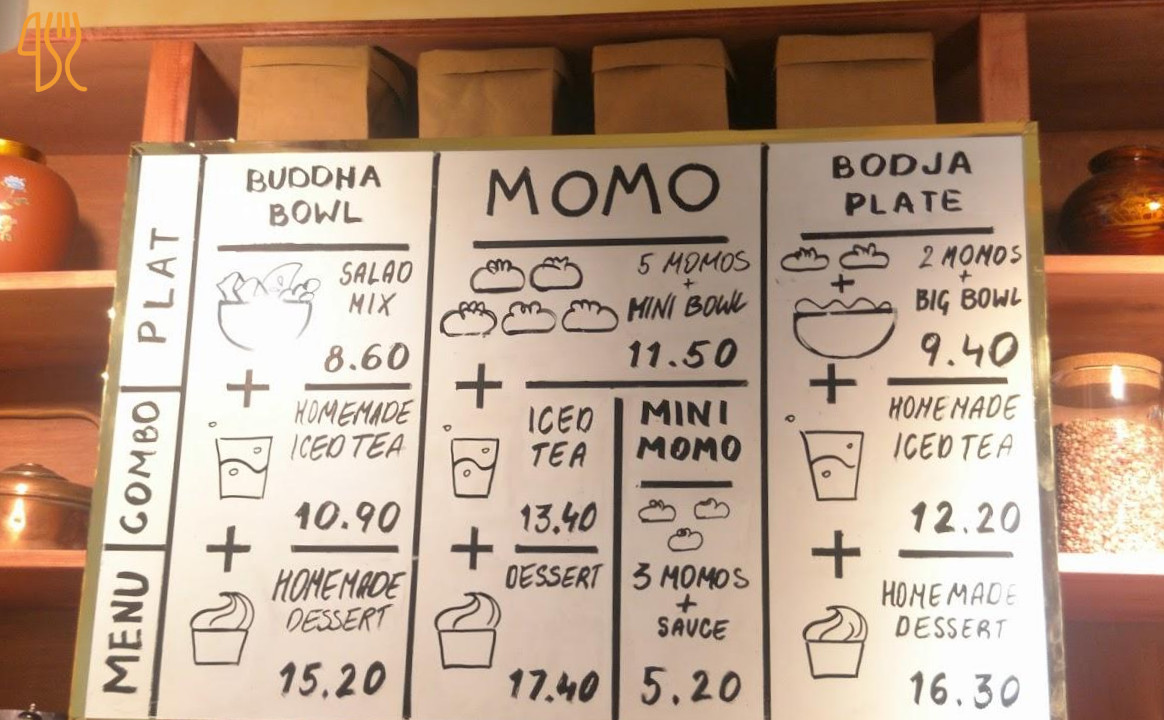 PLAT
COMBO
MENU
BUDDHA
BOWL
SALAD
MIX
8.60
+
HOMEMADE
ICED TEA
10.90
+
HOMEMADE
DESSERT
15.20
MOMO
5 MOMOS
+
MINI BOWL
11.50
+
ICED
TEA
13.40
+
DESSERT
17.40
MINI
MOMO
3 MOMOS
+
SAUCE
5.20
BODJA
PLATE
2 MOMOS
+
+
BIG BOWL
9.40
+
HOMEMADE
ICED TEA
12.20
+
HOMEMADE
DESSERT
16.30